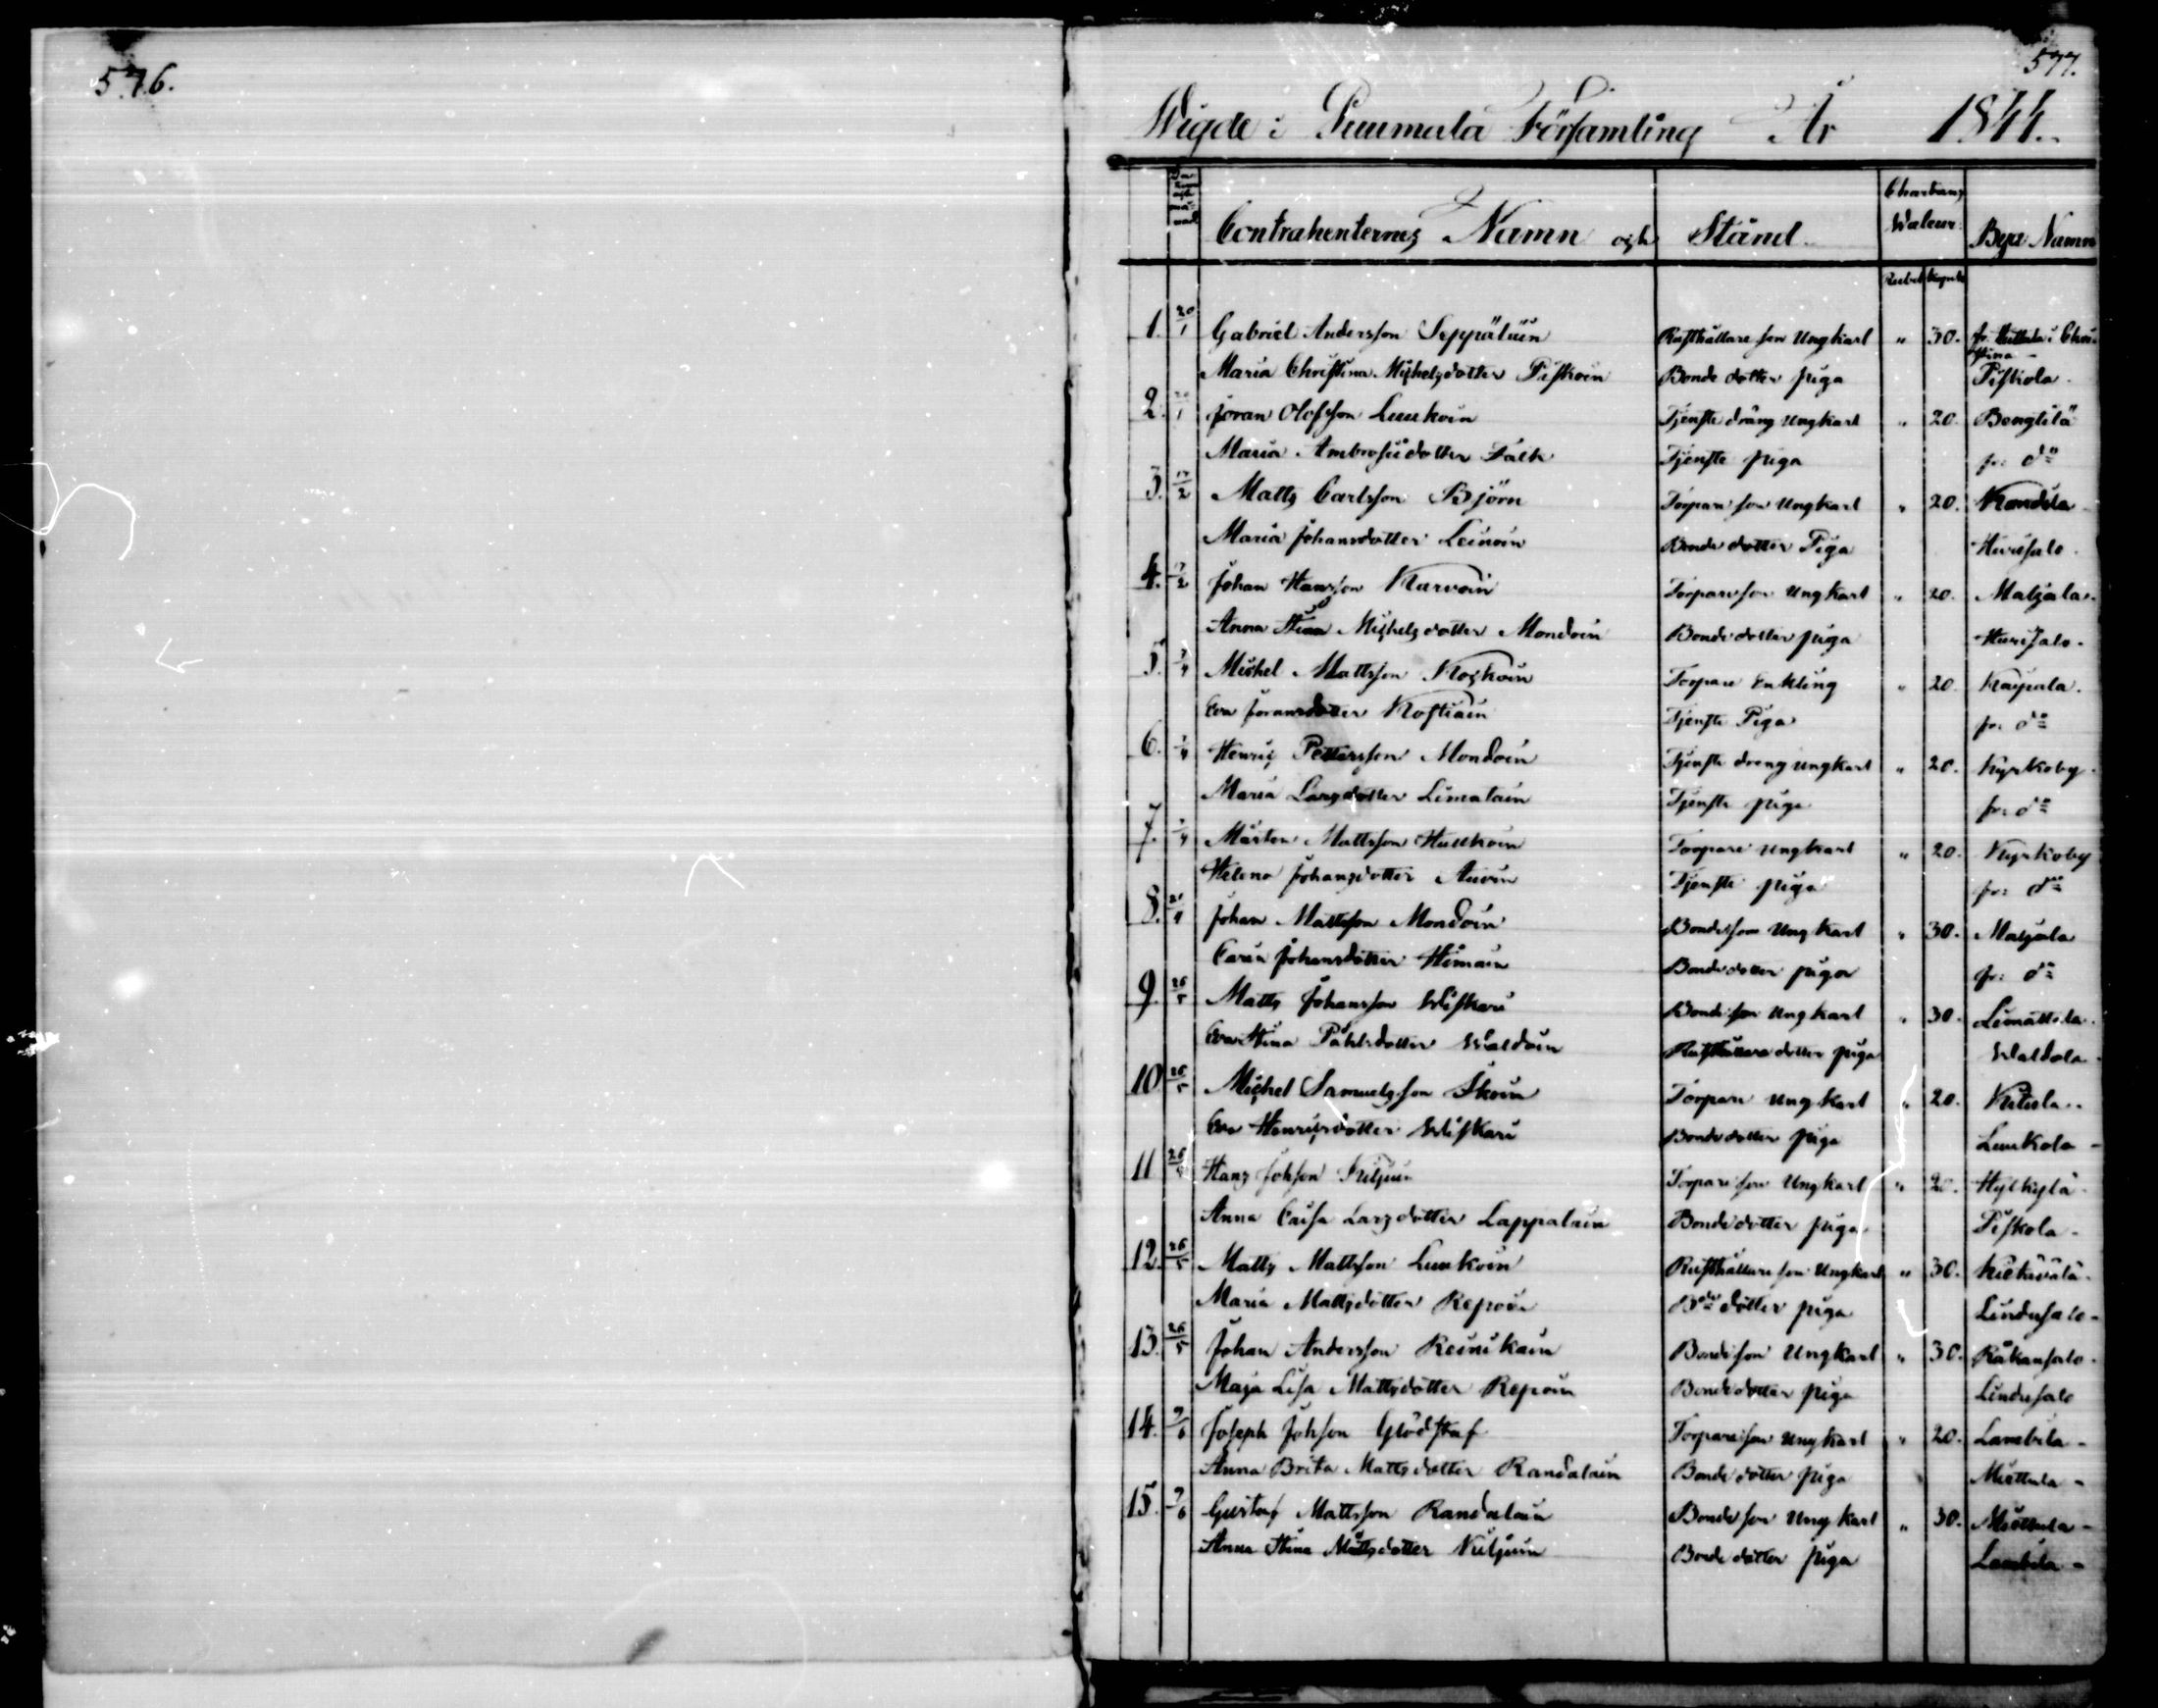 576.
577.
Wigde i Puumala Församling År 1844.
Datum och månad
Contrahenternes Namn och Stånd
Charta Waleur
Byn Namn
Rubel Kopek
1. 20/1 Gabriel Andersson Seppäläin Rusthållare son Ungkarl " 30. fr. Chri-
stina
Maria Christina Michelsdotter Piskoin Bonde dotter piga Piskola
2. 20/1 Jöran Olofsson Luukoin Tjenste dräng Ungkarl " 20.
Maria Ambrosiidotter Falk Tjenste piga fr: do
3. 17/2 Matts Carlsson Björn Torpare son Ungkarl " 20.
Maria Johansdotter Leinoin Bonde dotter Piga Hurisalo
4. 17/2 Johan Hansson Karvoin Torpare son Ungkarl " 20.
Anna Stina Michelsdotter Mondoin Bonde dotter piga Hurisalo
5. 7/4 Michel Mattsson Koskoin Torpare Enkling " 20.
Eva Jöransdotter Kostiain Tjenste Piga fr: do
6. 7/4 Henric Pettersson Mondoin Tjenste dreng ungkarl " 20. Kyrkoby
Maria Larsdotter Limatain Tjenste piga fr: do
7. 7/4 Mårten Mattsson Torpare ungkarl " 20. Kyrkoby
Helena Johansdotter Auvin Tjenste piga fr: do
8. Johan Mattsson Mondoin Bonde son Ungkarl " 30.
Carin Johansdotter Himain Bonde dotter piga fr: do
9. 26/5 Matts Johansson Wiskari Bonde son Ungkarl " 30. Limattila
Eva Stina Påhlsdotter Waldoin Rusthållare dotter piga Waldola
10 26/5 Michel Samuelsson Ikoin Torpare ungkarl " 20. Kitula
Eva Henricsdotter Wiskari Bonde dotter piga Luukola
11 26/5 Hans Johsson Kiljuin Torpare son Ungkarl " 20.
Anna Caisa Larsdotter Lappalain Bonde dotter piga Piskola
12. 26/5 Matts Mattsson Luukoin Rusthållare son Ungkarl " 30.
Maria Mattsdotter Repoin Bde dotter piga Lindusalo
13. 26/5 Johan Andersson Reinikain Bonde son Ungkarl " 30. Råkansalo
Maja Lisa Mattsdotter Repoin Bonde dotter piga Lindusalo
14. 9/6 Joseph Johsson Glödstaf Torpare son Ungkarl " 20. Lambila
Anna Brita Mattsdotter Randalain Bonde dotter piga Miettula
15. 9/6 Gustaf Mattsson Randalain Bonde son Ungkarl " 30. Miettula
Anna Stina Mattsdotter Kiljuin Bonde dotter piga Lambila